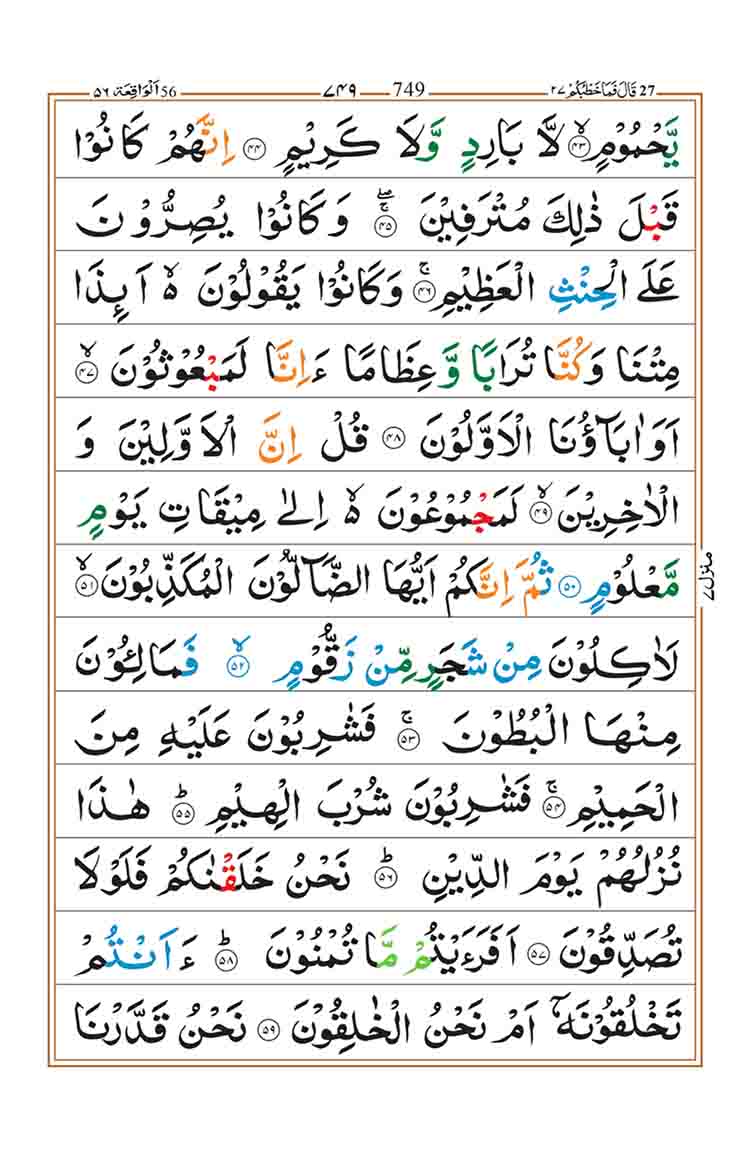 27 قَالَ فَمَا خَطْبُكُمْ ٢٧ 749 ٧٤٩ 56 اَلْوَاقِعَة ٥٦
يَّحْمُوْمٍ ۙ﴿۴۳﴾ لَّا بَارِدٍ وَّلَا كَرِيْمٍ ﴿۴۴﴾ اِنَّهُمْ كَانُوْا
قَبْلَ ذٰلِكَ مُتْرَفِيْنَ ۚۖ﴿۴۵﴾ وَكَانُوْا يُصِرُّوْنَ
عَلَى الْحِنْثِ الْعَظِيْمِ ۚ﴿۴۶﴾ وَكَانُوْا يَقُوْلُوْنَ ۙ۬ اَئِذَا
مِتْنَا وَكُنَّا تُرَابًا وَّعِظَامًا ءَاِنَّا لَمَبْعُوْثُوْنَ ۙ﴿۴۷﴾
اَوَاٰبَآؤُنَا الْاَوَّلُوْنَ ﴿۴۸﴾ قُلْ اِنَّ الْاَوَّلِيْنَ وَ
الْاٰخِرِيْنَ ۙ﴿۴۹﴾ لَمَجْمُوْعُوْنَ ۙ۬ اِلٰى مِيْقَاتِ يَوْمٍ
مَّعْلُوْمٍ ﴿۵۰﴾ ثُمَّ اِنَّكُمْ اَيُّهَا الضَّآلُّوْنَ الْمُكَذِّبُوْنَ ۙ﴿۵۱﴾
لَاٰكِلُوْنَ مِنْ شَجَرٍ مِّنْ زَقُّوْمٍ ۙ﴿۵۲﴾ فَمَالِـُٔوْنَ
مِنْهَا الْبُطُوْنَ ۚ﴿۵۳﴾ فَشٰرِبُوْنَ عَلَيْهِ مِنَ
الْحَمِيْمِ ۚ﴿۵۴﴾ فَشٰرِبُوْنَ شُرْبَ الْهِيْمِ ؕ﴿۵۵﴾ هٰذَا
نُزُلُهُمْ يَوْمَ الدِّيْنِ ؕ﴿۵۶﴾ نَحْنُ خَلَقْنٰكُمْ فَلَوْلَا
تُصَدِّقُوْنَ ﴿۵۷﴾ اَفَرَءَيْتُمْ مَّا تُمْنُوْنَ ؕ﴿۵۸﴾ ءَاَنْتُمْ
تَخْلُقُوْنَهٗۤ اَمْ نَحْنُ الْخٰلِقُوْنَ ﴿۵۹﴾ نَحْنُ قَدَّرْنَا
منزل ٧